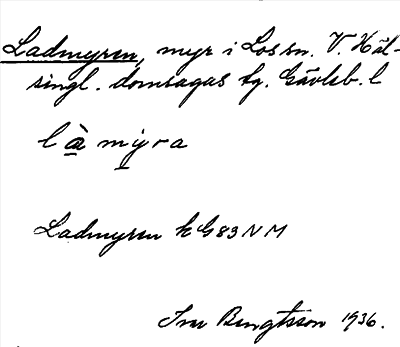 Ladmyren, myr i Los sn. V. Häl-
singl. domsagas tg. Gävleb. l
l à m y r a
Ladmyren k G83NM
Ivar Bengtsson 1936.